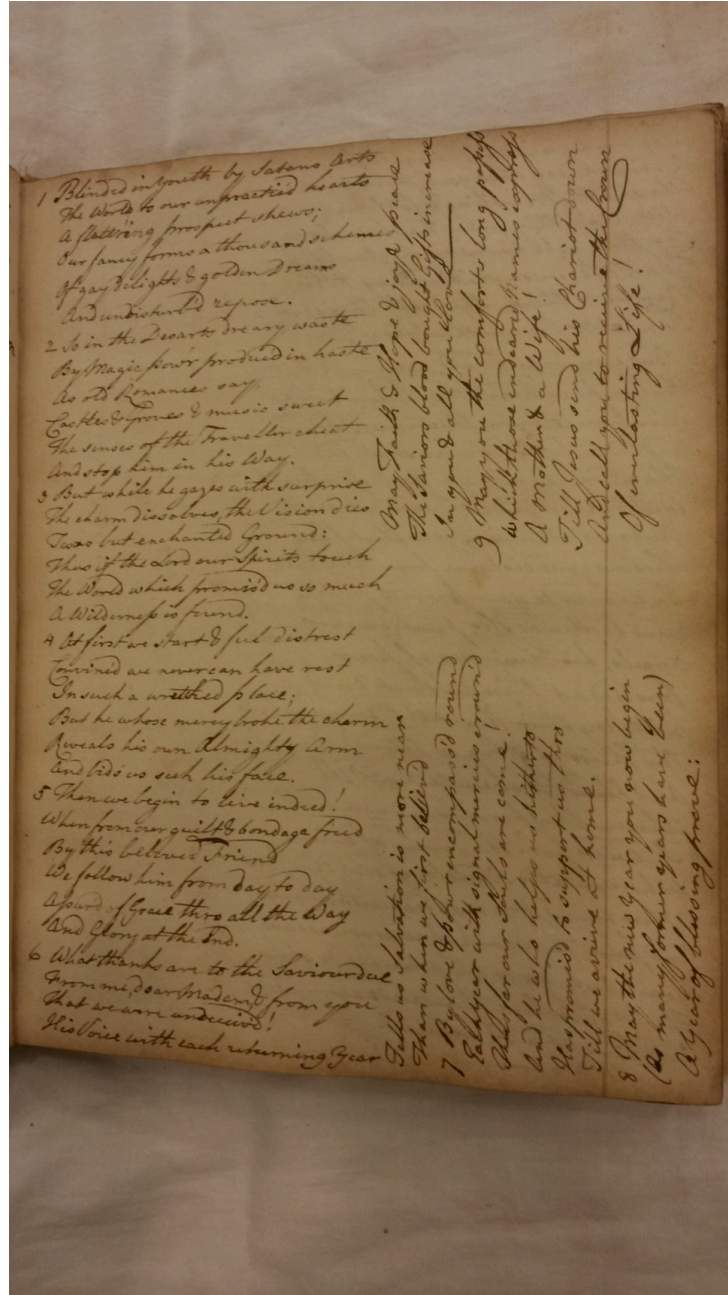 1 Blinded in youth by Satans Arts
The World to our unpractied hearts
A flattering prospect shews;
Our fancy forms a thousand schemes
Of gay delights & golden Dreams
And undisturb'd repose.
2 So in the Desarts dreary waste
By Magic pow'r produced in haste
As old Romances say,
Castles & Groves & music sweet
The senses of the Traveller cheat
And stop him in his Way.
3 But while he gazes with surprise
The charm dissolves, the Vision dies
Twas but enchanted Ground:
Thus if the Lord our Spirits touch
The World which promis'd us so much
A Wilderness is found.
4 At first we start & feel distrest
Convinced we never can have rest
In such a wretched place;
But he whose mercy broke the charm
Reveals his own Almighty Arm
And bids us seek his face.
5 Then we begin to live indeed!
When from our guilt & bondage freed
By this beloved Friend
We follow him from day to day
Assur'd of Grace thro all the Way
And Glory at the End.
6 What thanks are to the Saviour due
From me, dear Madam, & from you
That we were undeceiv'd!
His Voice with each returning Year
Tells us Salvation is more near
Than when we first believd
7 By love & pow'r encompass'd round
Each year with signal mercies crown'd
Thus far our Souls are come!
And he who helps us hitherto
Has promis'd to support us thro
Till we arrive at home.
8 May the new year you now begin
(As many former years have been)
A Year of blessing prove:
May Faith & Hope & joy & peace
The Saviors blood bought Gifts increase
In you & all you love
9 May you the comforts long possess
Which those endeared names express
A Mother & a Wife!
Till Jesus send his Chariot down
And call you to receive the Crown
Of everlasting Life!